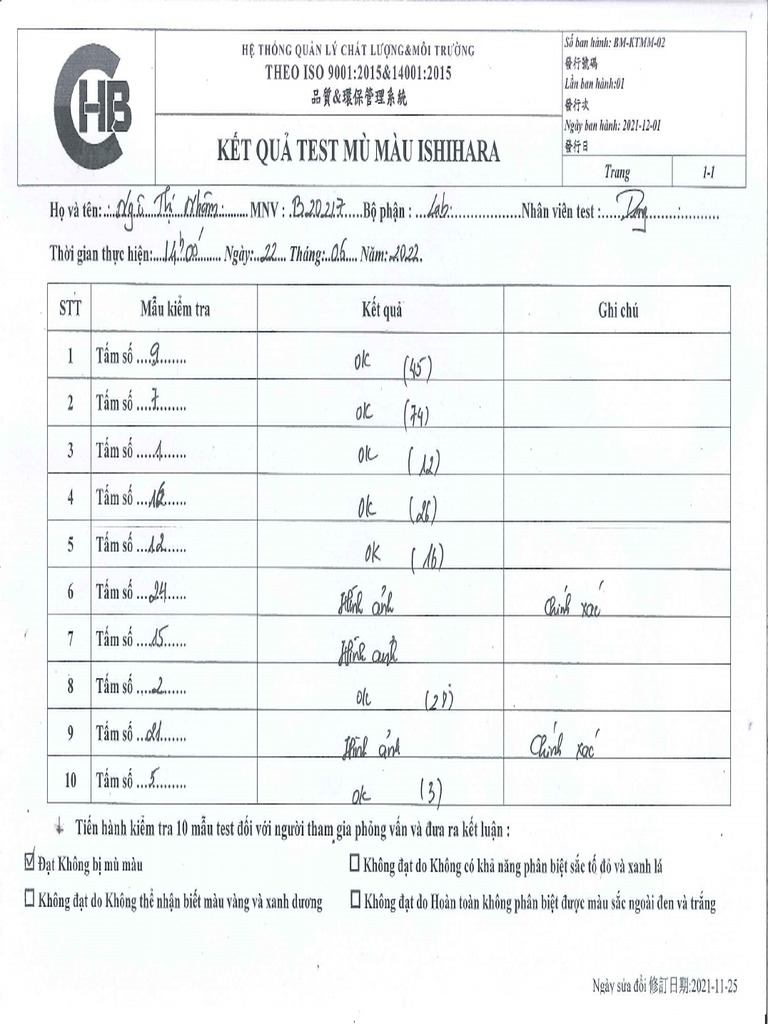 CHB
HỆ THỐNG QUẢN LÝ CHẤT LƯỢNG&MÔI TRƯỜNG
THEO ISO 9001:2015&14001:2015
品質&環保管理系統
KẾT QUẢ TEST MÙ MÀU ISHIHARA
Số ban hành: BM-KTMM-02
發行號碼
Lần ban hành:01
發行次
Ngày ban hành: 2021-12-01
發行日
Trang 1-1
Họ và tên: Ngô Thị Nhâm MNV : B20217 Bộ phận : Lab Nhân viên test :
Thời gian thực hiện: 14h00' Ngày: 22 Tháng: 06 Năm: 2022.
STT Mẫu kiểm tra Kết quả Ghi chú
1 Tấm số 9 OK (45)
2 Tấm số 7 OK (74)
3 Tấm số 1 OK (12)
4 Tấm số OK (26)
5 Tấm số 12 OK (16)
6 Tấm số 24 Hình ảnh Chính xác
7 Tấm số 15 Hình ảnh
8 Tấm số 2 OK
9 Tấm số 21 Hình ảnh Chính xác
10 Tấm số 5 OK (3)
Tiến hành kiểm tra 10 mẫu test đối với người tham gia phỏng vấn và đưa ra kết luận :
☑ Đạt Không bị mù màu ☐ Không đạt do Không có khả năng phân biệt sắc tố đỏ và xanh lá
☐ Không đạt do Không thể nhận biết màu vàng và xanh dương ☐ Không đạt do Hoàn toàn không phân biệt được màu sắc ngoài đen và trắng
Ngày sửa đổi 修訂日期:2021-11-25